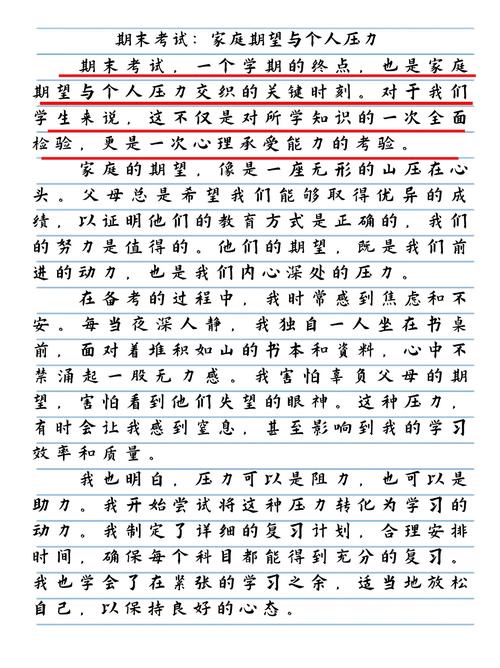 期末考试：家庭期望与个人压力
期末考试，一个学期的终点，也是家庭
期望与个人压力交织的关键时刻。对于我们
学生来说，这不仅是对所学知识的一次全面
检验，更是一次心理承受能力的考验。
家庭的期望，像是一座无形的山压在心
头。父母总是希望我们能够取得优异的成
绩，以证明他们的教育方式是正确的，我们
的努力是值得的。他们的期望，既是我们前
进的动力，也是我们内心深处的压力。
在备考的过程中，我时常感到焦虑和不
安。每当夜深人静，我独自一人坐在书桌
前，面对着堆积如山的书本和资料，心中不
禁涌起一股无力感。我害怕辜负父母的期
望，害怕看到他们失望的眼神。这种压力，
有时会让我感到窒息，甚至影响到我的学习
效率和质量。
我也明白，压力可以是阻力，也可以是
助力。我开始尝试将这种压力转化为学习的
动力。我制定了详细的复习计划，合理安排
时间，确保每个科目都能得到充分的复习。
我也学会了在紧张的学习之余，适当地放松
自己，以保持良好的心态。